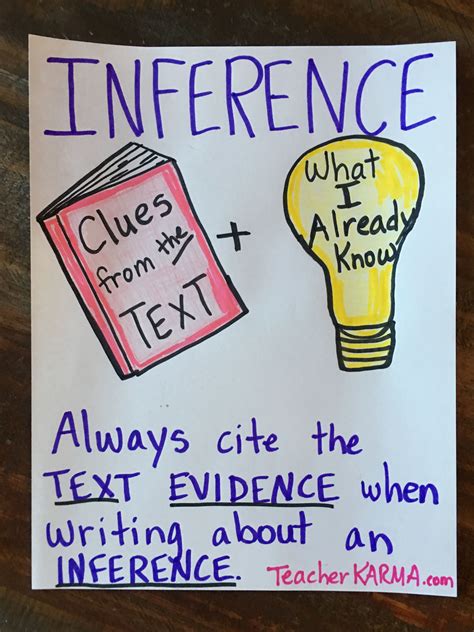 INFERENCE
Clues
from the
TEXT
+
What
I
Already
Know
Always cite the
TEXT EVIDENCE when
writing about an
INFERENCE.
TeacherKARMA.com